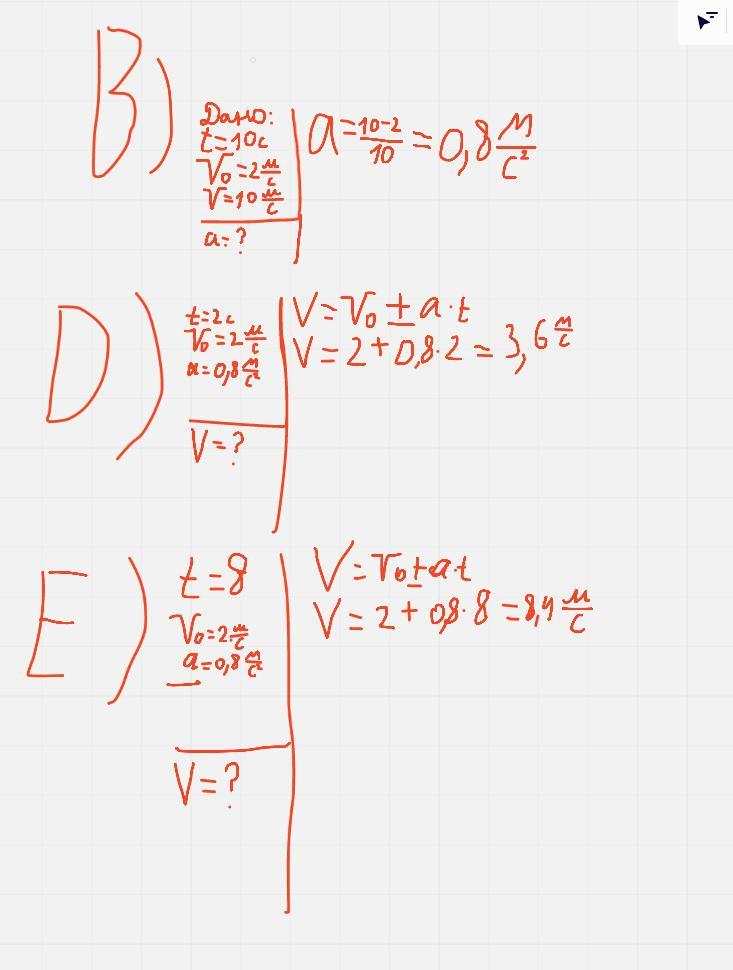 B)
Дано:
t=10c
V₀=2 м/с
V=10 м/с
a-?
a=(10-2)/10=0,8 м/с²
D)
t=2c
V₀=2 м/с
a=0,8 м/с²
V=?
V=V₀±a·t
V=2+0,8·2=3,6 м/с
E)
t=8
V₀=2 м/с
a=0,8 м/с²
V=?
V=V₀±a·t
V=2+0,8·8=8,4 м/с